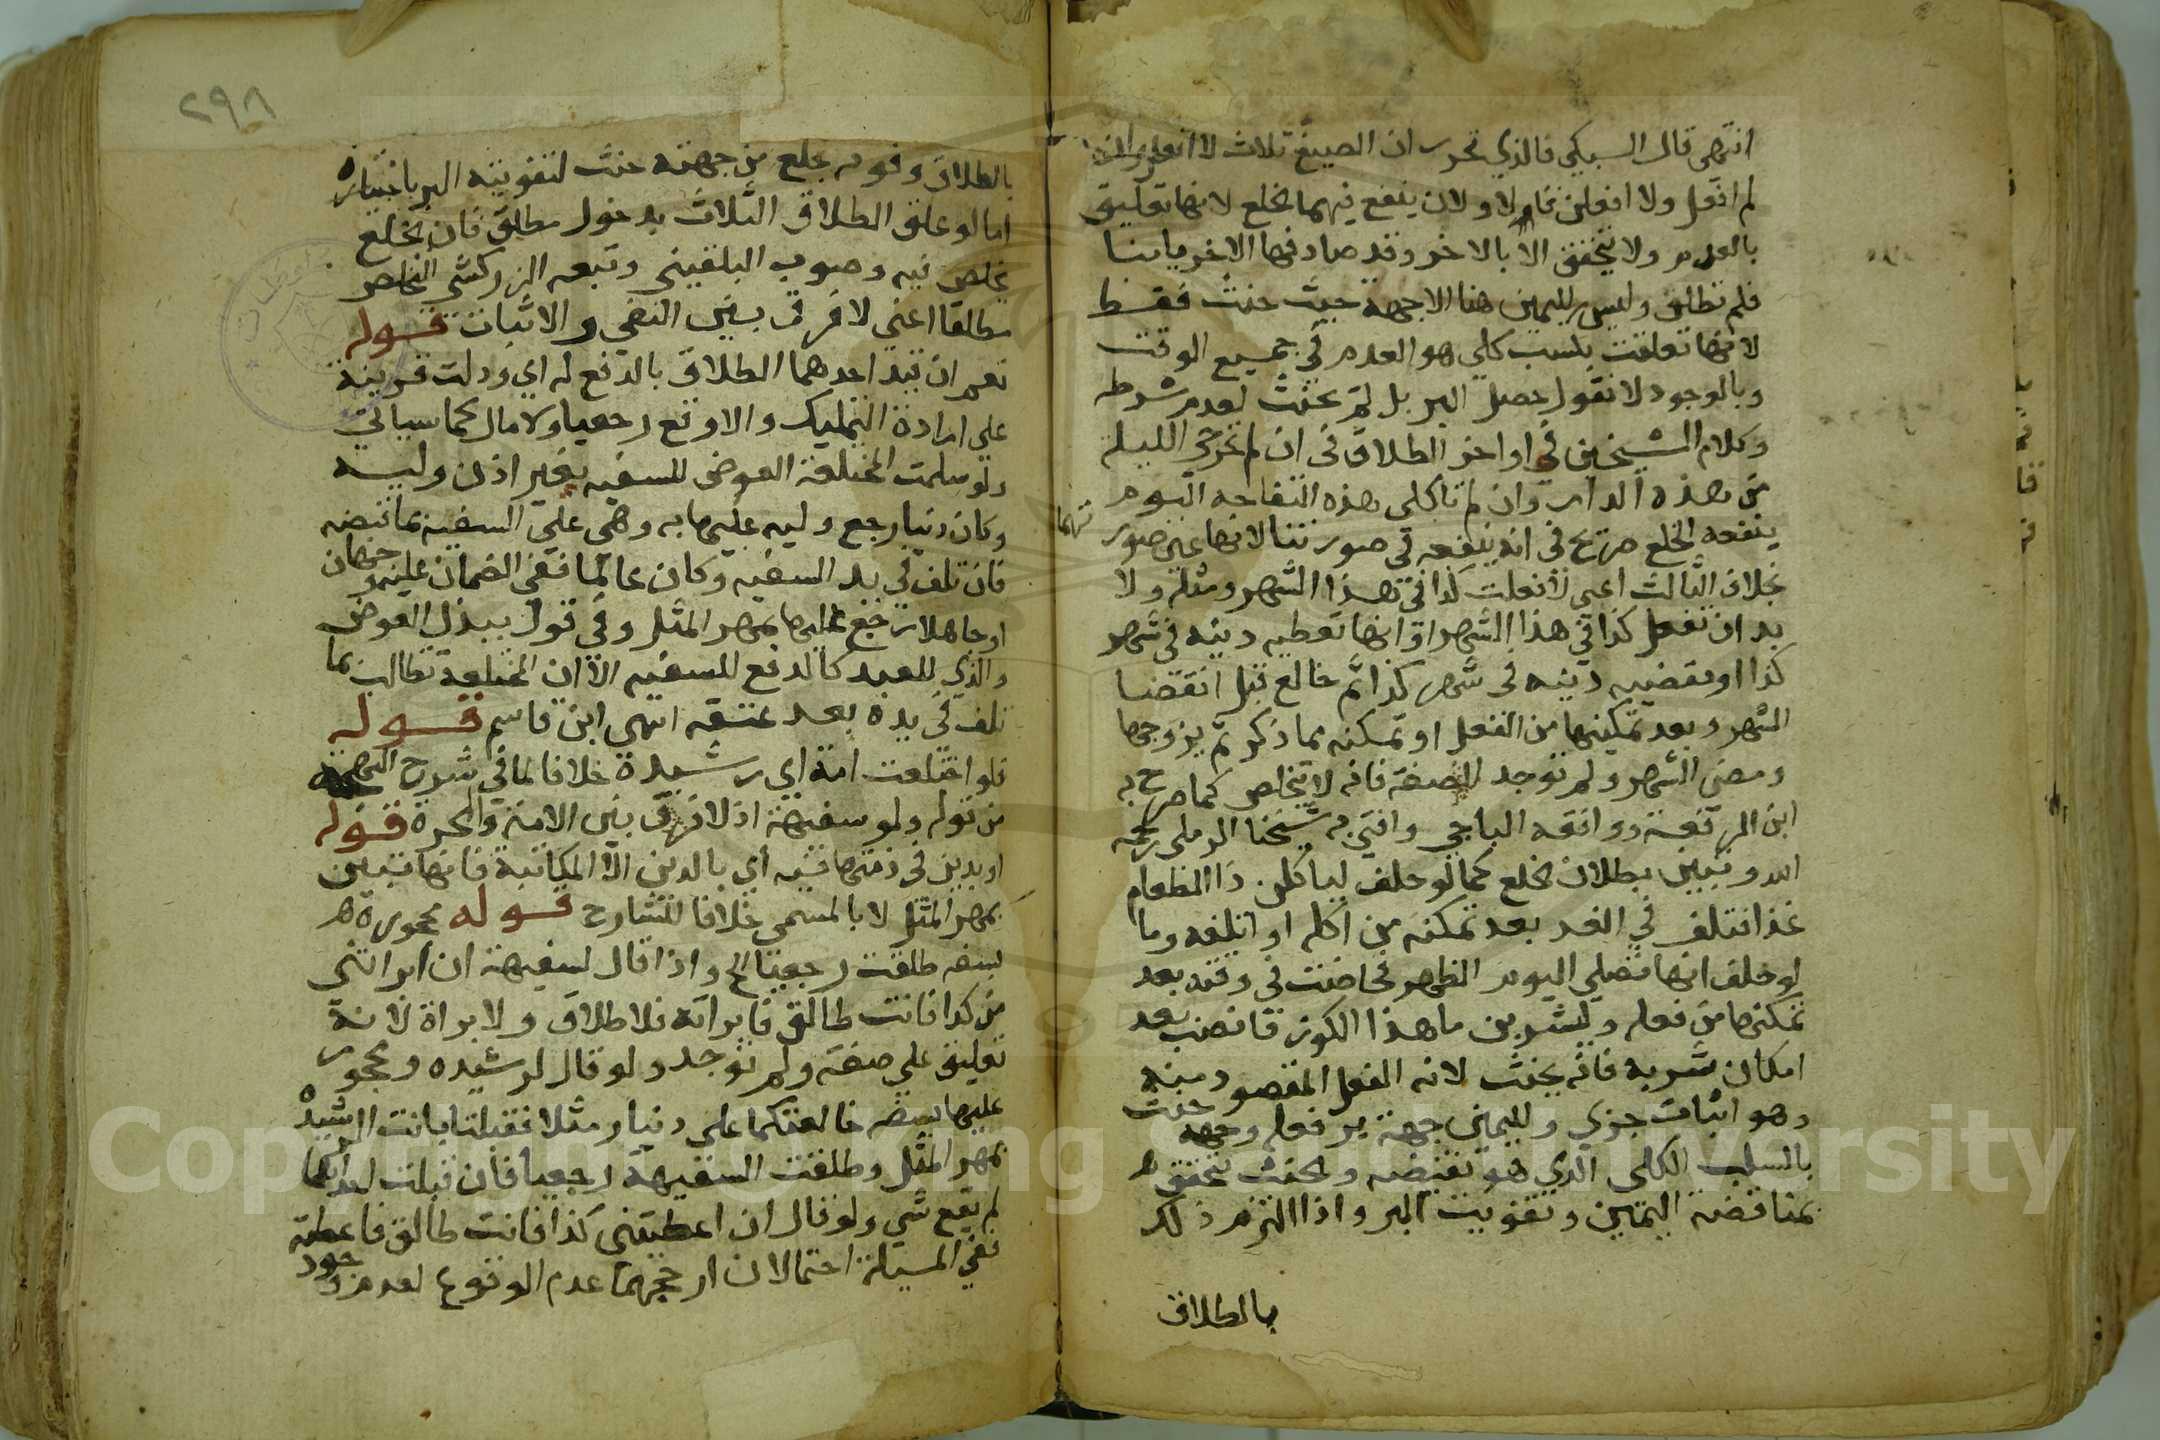 انتهى قال السبكي فالذي تحرر ان الصيغ ثلاث لا افعل وان
لم افعل ولا افعلن فالاولان ينفع فيهما الخلع لانها تعليق
بالعدم ولا يتحقق الا بالاخر وقد صادفها الاخر باينا
فلم تطلق وليس لليمين هنا الا جهة حيث حنث فقط
لانها تعلقت بسلب كلي هو العدم في جميع الوقت
وبالوجود لا نقول حصل البر بل لم يحنث لعدم شرطه
وكلام الشيخين في اواخر الطلاق في ان لم تخرجي الليلة
من هذه الدار وان لم تاكلي هذه التفاحة اليوم
ينفعه الخلع صريح في انه ينفعه في صورتنا لانها عين صورتهما
بخلاف الثالث اعني لافعلت كذا في هذا الشهر ومثله ولا
بد ان تفعل كذا في هذا الشهر او انها تعطيه دينه في شهر
كذا او يقضيه دينه في شهر كذا ثم خالع قبل انقضا
الشهر وبعد تمكينها من الفعل او تمكنه مما ذكر ثم يزوجها
ومضى الشهر ولم توجد الصفة فانه لا يتخلص كما صرح به
ابن الرفعة ووافقه الباجي وافتى به شيخنا الرملي رحمه
الله وتبين بطلان الخلع كما لو حلف لياكلن ذا الطعام
غدا فتلف في الغد بعد تمكنه من اكله او اتلفه وما
لو حلف انها تصلي اليوم الظهر فحاضت في وقته بعد
تمكنها من فعله وليشربن ما هذا الكوز فانصب بعد
امكان شربه فانه يحنث لانه الفعل المقصود منه
وهو اثبات جزي ولليمين جهة بر فعله وجهة حنث
بالسلب الكلي الذي هو نقيضه والحنث يتحقق
بمناقضة اليمين وتفويت البر واذا التزم ذلك
بالطلاق
٢٩٨
بالطلاق وفوته بخلع من جهته حنث لتفويته البر باختياره
اما لو علق الطلاق الثلاث بدخول مطلق فان الخلع
يخلص فيه وصوب البلقيني وتبعه الزركشي التخلص
مطلقا اعني لا فرق بين النفي والاثبات قوله
نعم ان قيد احدهما الطلاق بالدفع له اي ودلت قرينة
على ارادة التمليك والا وقع رجعيا ولا مال كما سياتي
ولو سلمت المختلعة العوض للسفيه بغير اذن وليه
وكان دينا رجع وليه عليها به وهي على السفيه بما قبضه
فان تلف في يد السفيه وكان عالما ففي الضمان عليه وجهان
او جاهلا رجع عليها بمهر المثل وفي قول ببذل العوض
والذي للعبد كالدفع للسفيه الا ان المختلعة تطالب بما
تلف في يده بعد عتقه انتهى ابن قاسم قوله
فلو اختلعت امة اي رشيدة خلافا لما في شرح البهجة
من قوله ولو سفيهة اذ لا فرق بين الامة والحرة قوله
او بدين في ذمتها تبين اي بالدين الا المكاتبة فانها تبين
بمهر المثل لا بالمسمى خلافا للشارح قوله محجورة
بسفه طلقت رجعيا الخ واذا قال لسفيهة ان ابراتني
من كذا فانت طالق فابراته فلا طلاق ولا براة لانه
تعليق على صفة ولم توجد ولو قال لرشيده ومحجور
عليها بسفه خالعتكما على دينار مثلا فقبلتا بانت الرشيدة
بمهر المثل وطلقت السفيهة رجعيا فان قبلت احداهما
لم يقع شي ولو قال ان اعطيتني كذا فانت طالق فاعطته
ففي المسيلة احتمالان ارجحهما عدم الوقوع لعدم وجود
Copyright © King Saud University